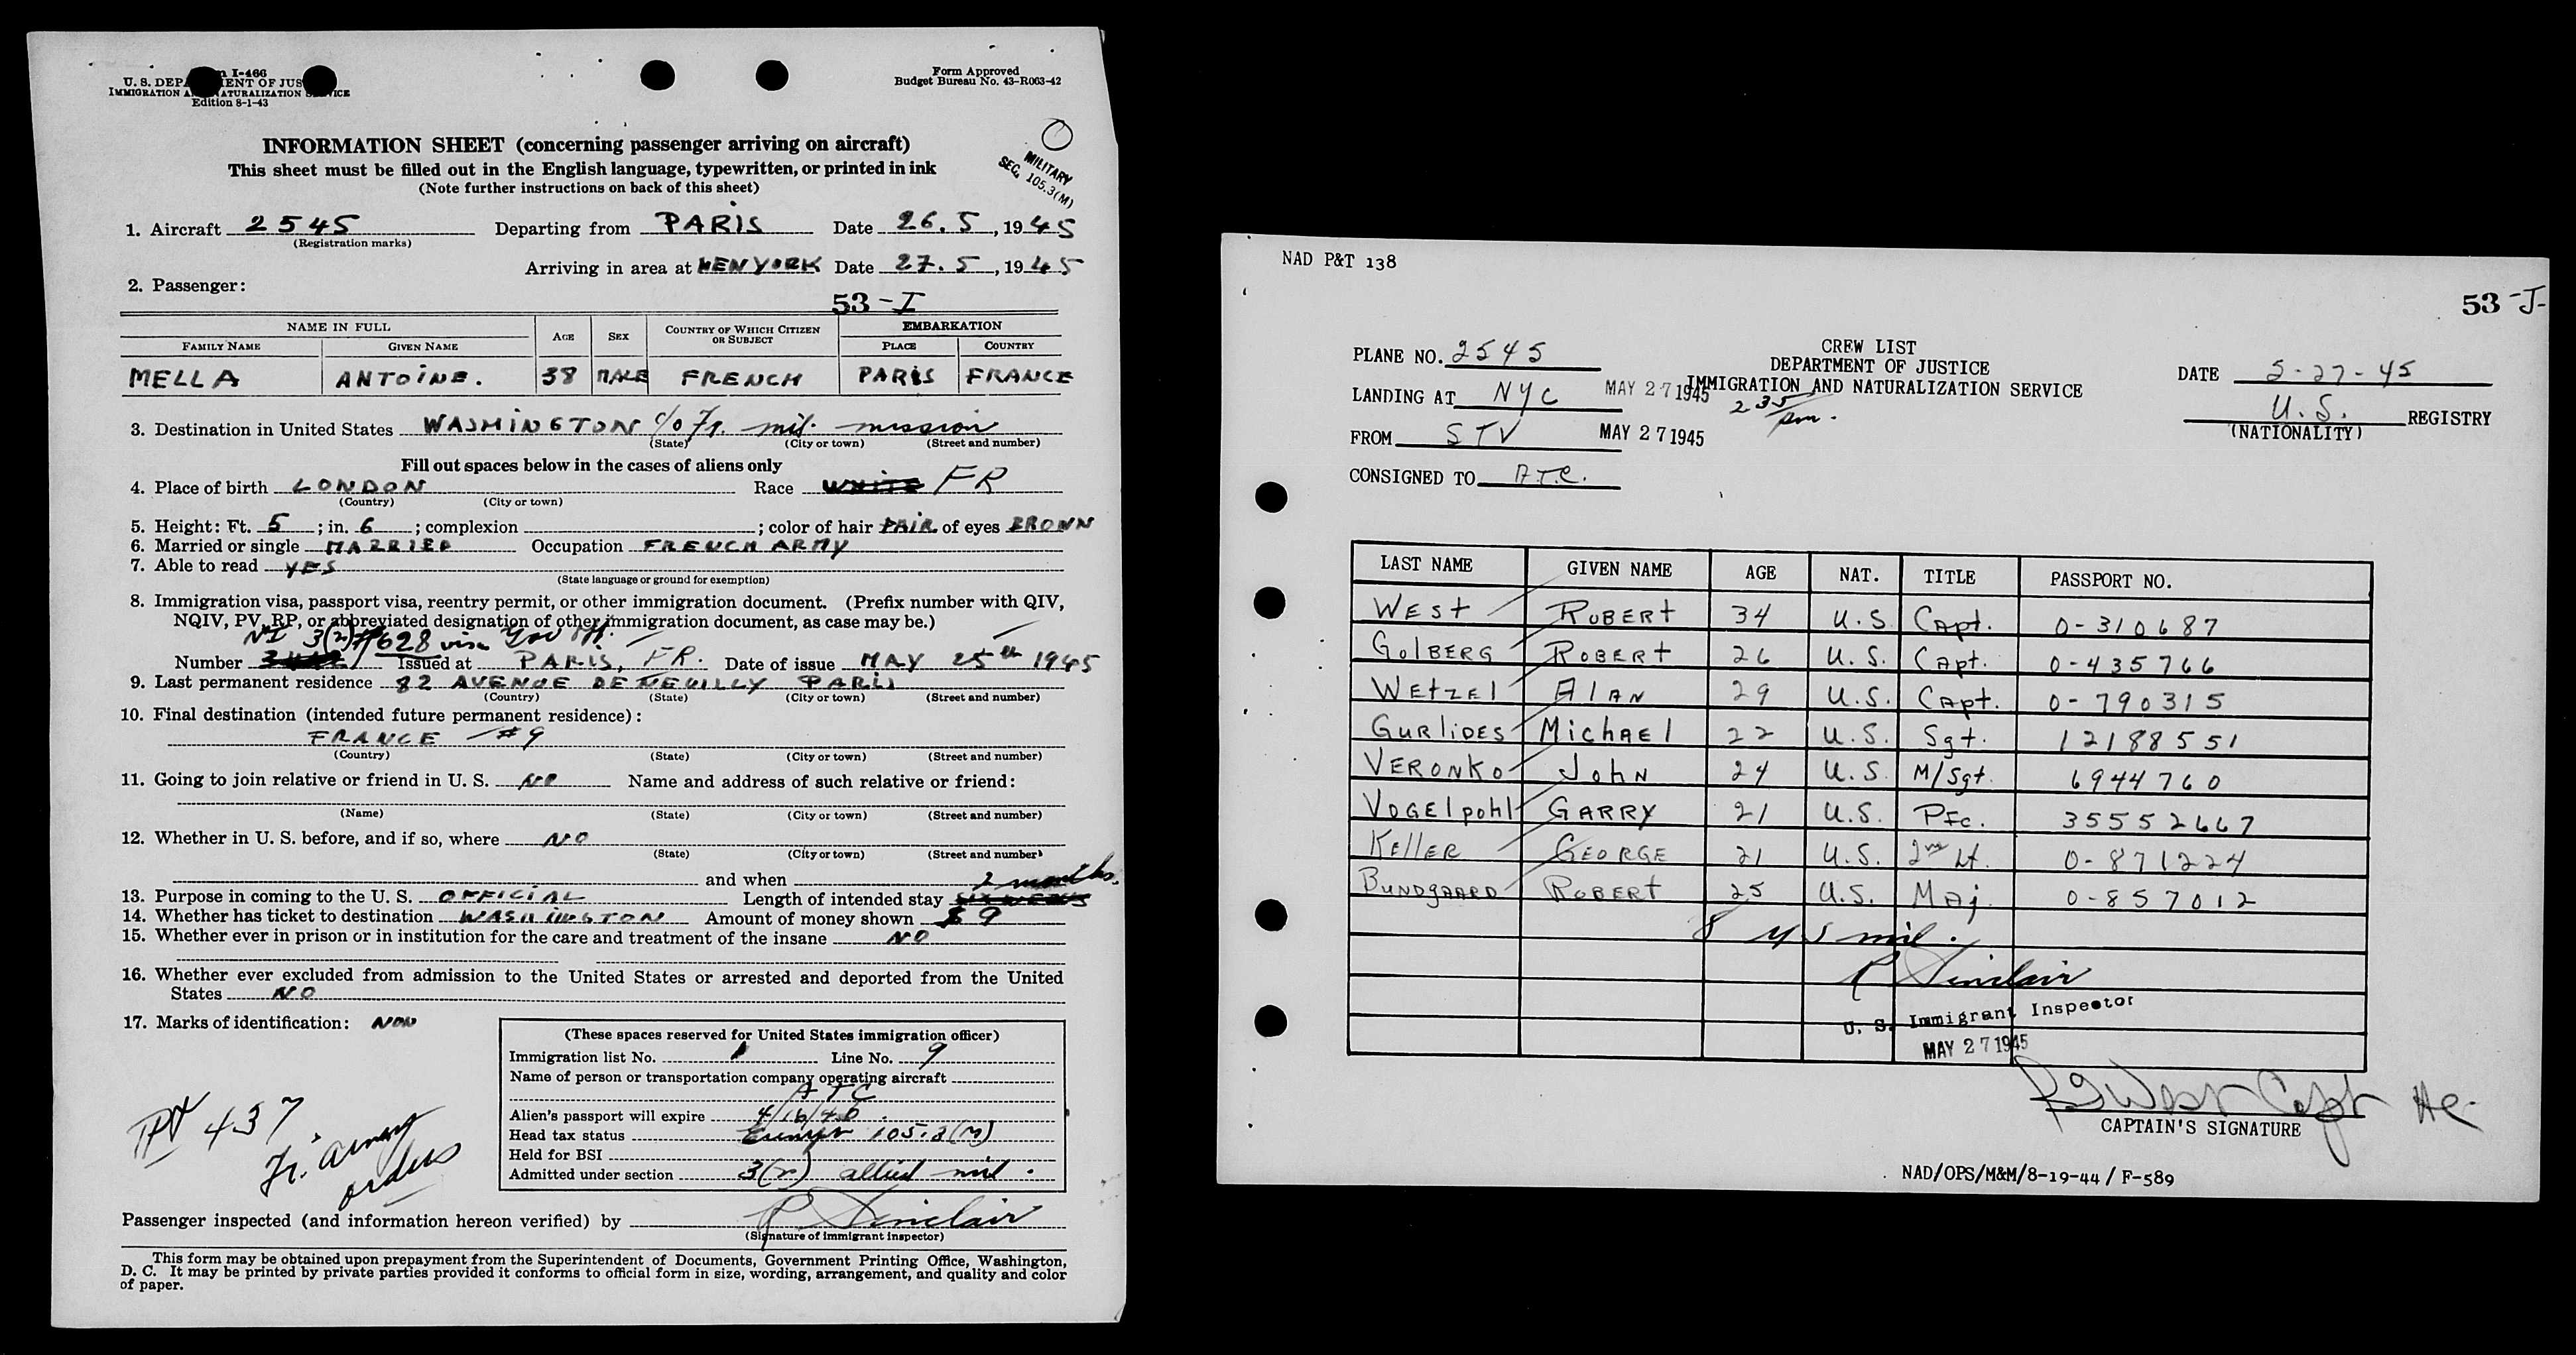 Form I-466
U. S. DEPARTMENT OF JUSTICE
IMMIGRATION AND NATURALIZATION SERVICE
Edition 8-1-43
Form Approved
Budget Bureau No. 43-R063-42
INFORMATION SHEET (concerning passenger arriving on aircraft)
This sheet must be filled out in the English language, typewritten, or printed in ink
(Note further instructions on back of this sheet)
MILITARY
SEC. 105.3(M)
1. Aircraft 2545 Departing from PARIS Date 26.5, 1945
(Registration marks)
Arriving in area at NEWYORK Date 27.5, 1945
2. Passenger:
53-I
NAME IN FULL AGE SEX COUNTRY OF WHICH CITIZEN OR SUBJECT EMBARKATION
FAMILY NAME GIVEN NAME PLACE COUNTRY
MELLA ANTOINE. 38 MALE FRENCH PARIS FRANCE
3. Destination in United States WASHINGTON c/o Fr. mil. mission
(State) (City or town) (Street and number)
Fill out spaces below in the cases of aliens only
4. Place of birth LONDON Race WHITE FR
(Country) (City or town)
5. Height: Ft. 5; in. 6; complexion ; color of hair FAIR of eyes BROWN
6. Married or single MARRIED Occupation FRENCH ARMY
7. Able to read YES
(State language or ground for exemption)
8. Immigration visa, passport visa, reentry permit, or other immigration document. (Prefix number with QIV,
NQIV, PV, RP, or abbreviated designation of other immigration document, as case may be.)
NI 3(2) #628 visa
Number Issued at PARIS, FR. Date of issue MAY 25th 1945
9. Last permanent residence 82 AVENUE DE NEUILLY PARIS
(Country) (State) (City or town) (Street and number)
10. Final destination (intended future permanent residence):
FRANCE #9
(Country) (State) (City or town) (Street and number)
11. Going to join relative or friend in U. S. NO Name and address of such relative or friend:
(Name) (State) (City or town) (Street and number)
12. Whether in U. S. before, and if so, where NO
(State) (City or town) (Street and number)
and when
2 months.
13. Purpose in coming to the U. S. OFFICIAL Length of intended stay SIX WEEKS
14. Whether has ticket to destination WASHINGTON Amount of money shown $ 9
15. Whether ever in prison or in institution for the care and treatment of the insane NO
16. Whether ever excluded from admission to the United States or arrested and deported from the United
States NO
17. Marks of identification: NON
(These spaces reserved for United States immigration officer)
Immigration list No. 1 Line No. 9
Name of person or transportation company operating aircraft
ATC
Alien's passport will expire 4/16/46.
Head tax status Exempt 105.3(M)
Held for BSI
Admitted under section 3(2) allied mil.
PPT 437
Fr. army
orders
Passenger inspected (and information hereon verified) by R Sinclair
(Signature of immigrant inspector)
This form may be obtained upon prepayment from the Superintendent of Documents, Government Printing Office, Washington,
D. C. It may be printed by private parties provided it conforms to official form in size, wording, arrangement, and quality and color
of paper.
NAD P&T 138
53-J-
CREW LIST
DEPARTMENT OF JUSTICE
IMMIGRATION AND NATURALIZATION SERVICE
PLANE NO. 2545
LANDING AT NYC MAY 27 1945
235 pm.
FROM STV MAY 27 1945
CONSIGNED TO A.T.C.
DATE 5-27-45
U.S. REGISTRY
(NATIONALITY)
LAST NAME GIVEN NAME AGE NAT. TITLE PASSPORT NO.
WEST ROBERT 34 U.S. Capt. 0-310687
GOLBERG ROBERT 26 U.S. Capt. 0-435766
WETZEL ALAN 29 U.S. Capt. 0-790315
GURLIDES MICHAEL 22 U.S. Sgt. 12188551
VERONKO JOHN 24 U.S. M/Sgt. 6944760
VOGELpohl GARRY 21 U.S. Pfc. 35552667
KELLER GEORGE 21 U.S. 2nd Lt. 0-871224
BUNDGAARD ROBERT 25 U.S. Maj. 0-857012
8 US mil.
R Sinclair
U. S. Immigrant Inspector
MAY 27 1945
R G West Capt AC
CAPTAIN'S SIGNATURE
NAD/OPS/M&M/8-19-44 / F-589